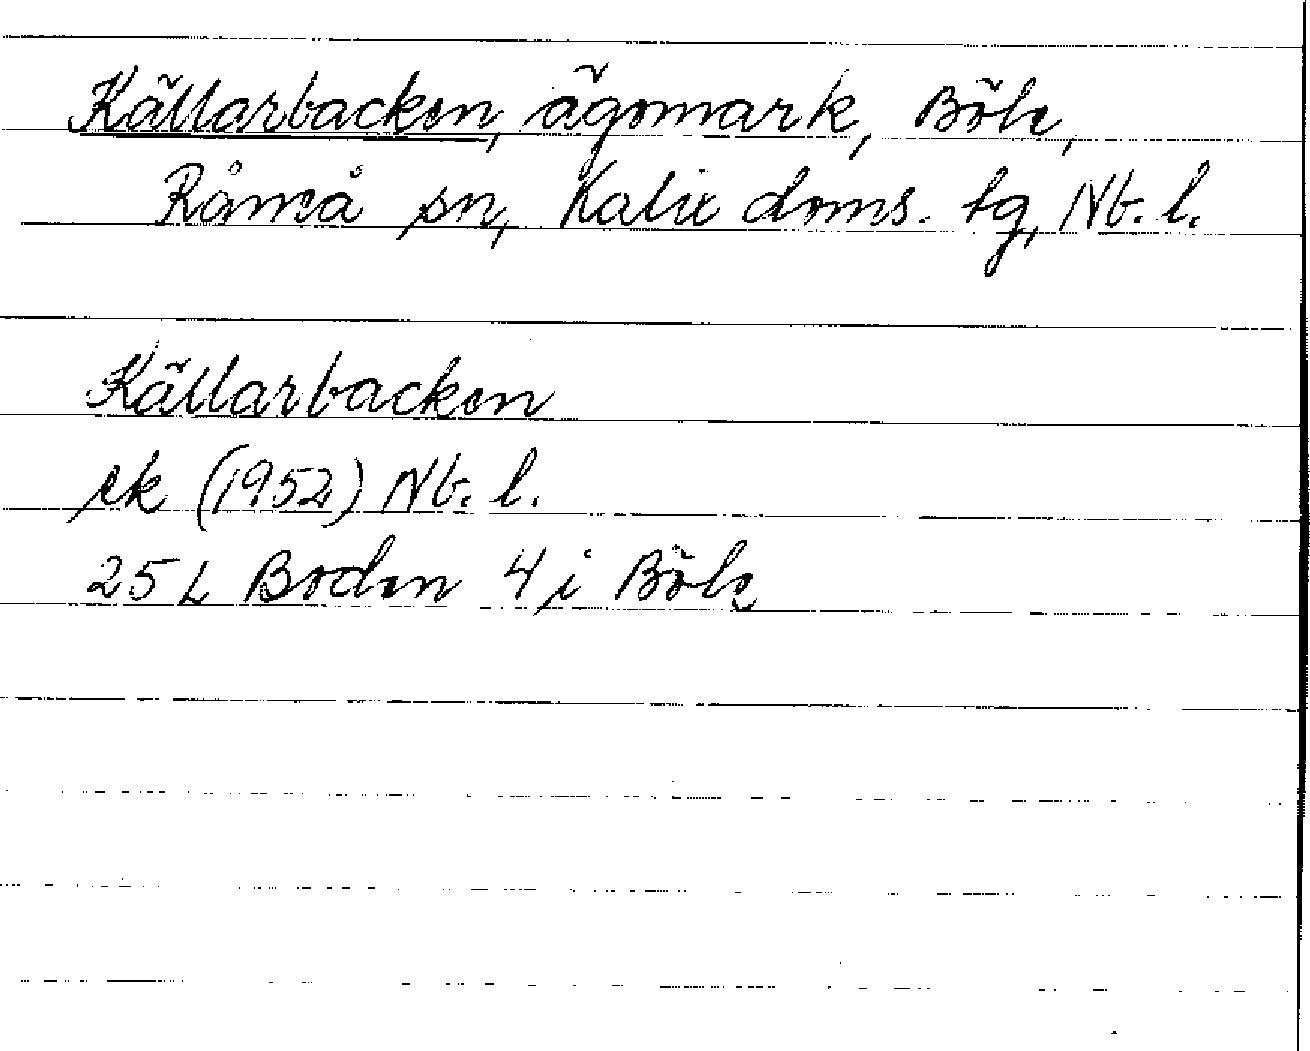 Källarbacken, ägomark, Böle,
Råneå sn, Kalix doms. tg, Nb. l.
Källarbacken
ek (1952) Nb. l.
25 L Boden 4 i Böle